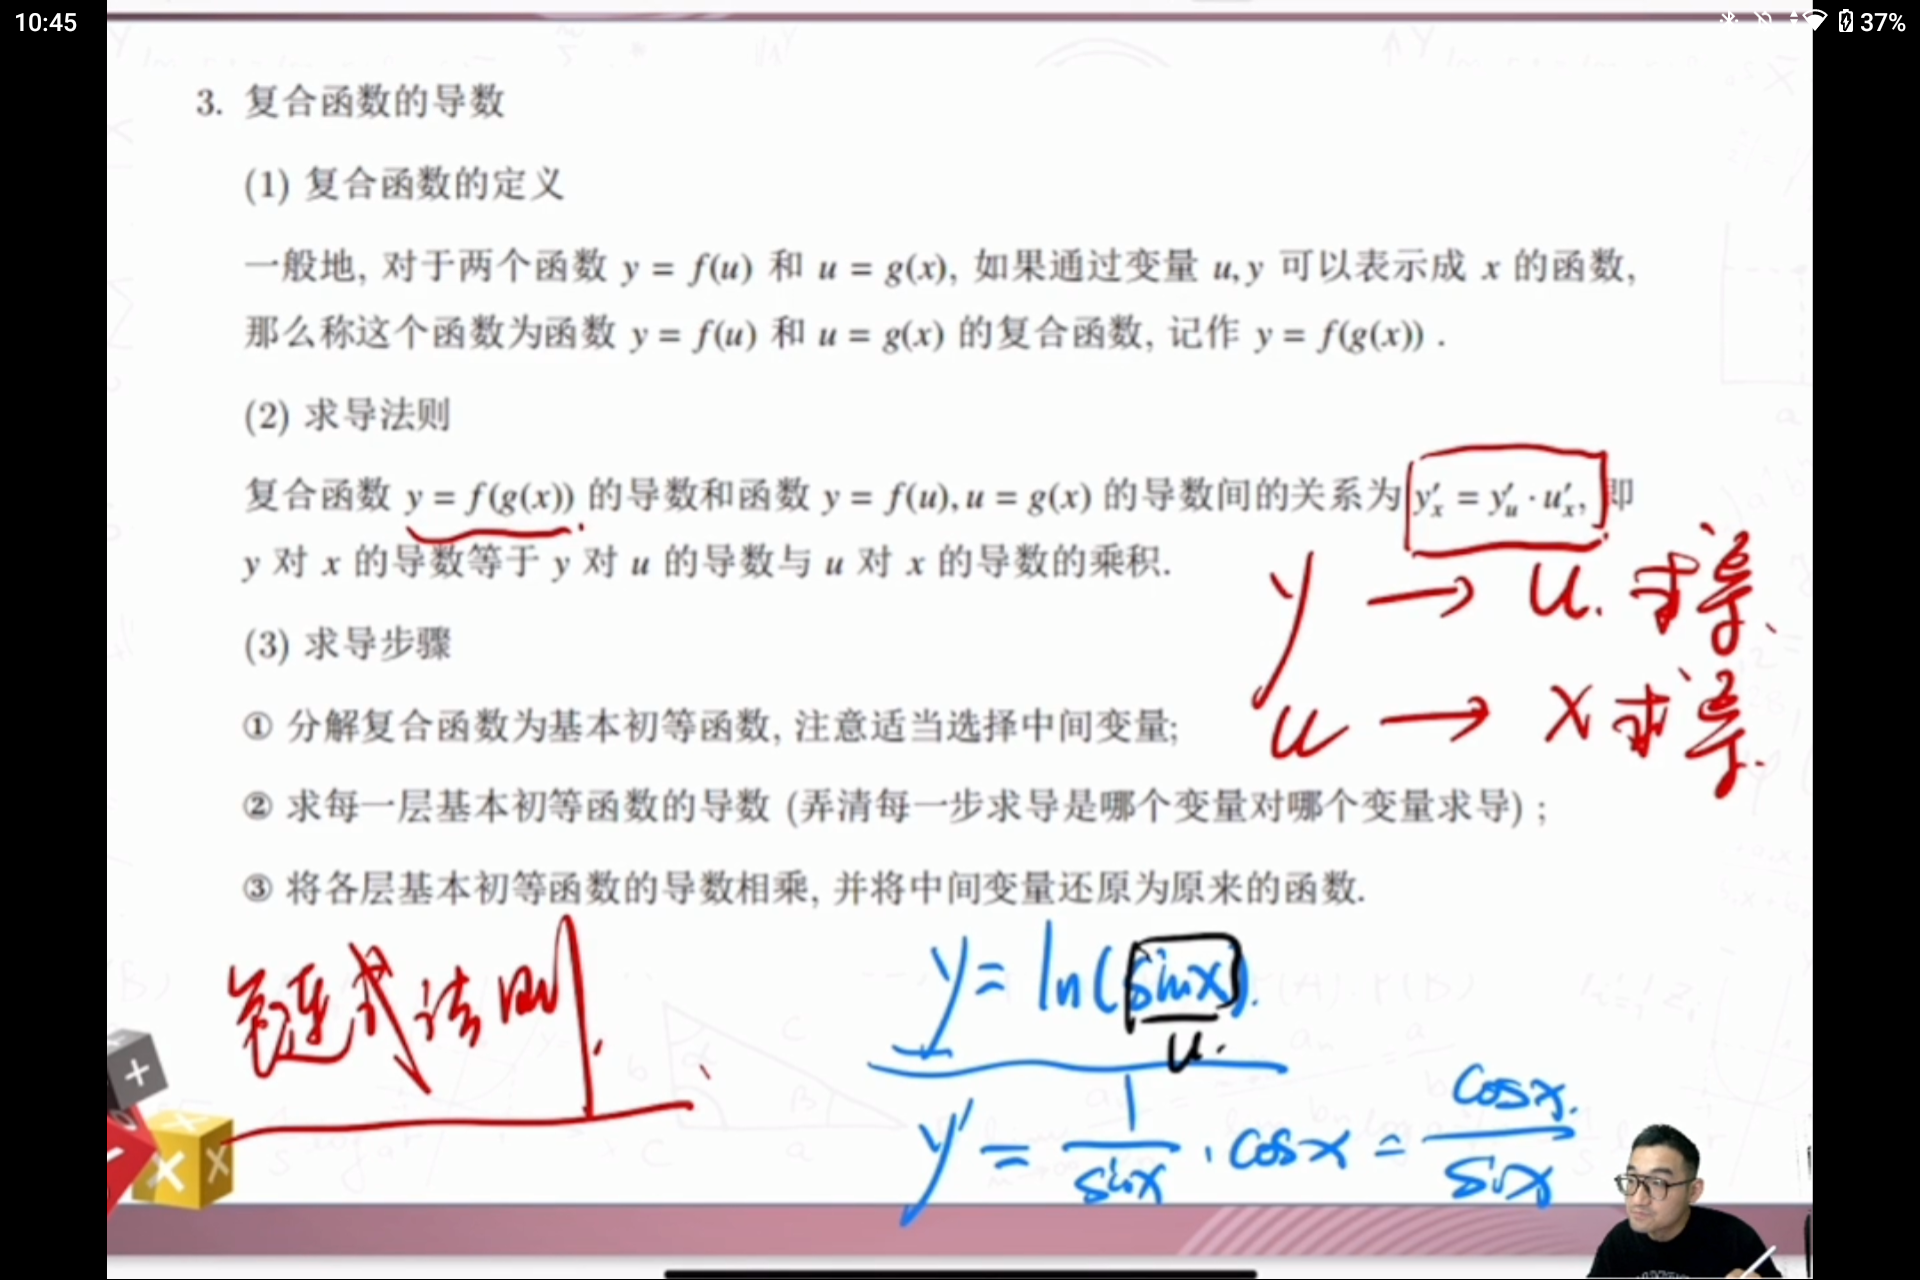 10:45
37%
3. 复合函数的导数
(1) 复合函数的定义
一般地, 对于两个函数 y = f(u) 和 u = g(x), 如果通过变量 u, y 可以表示成 x 的函数,
那么称这个函数为函数 y = f(u) 和 u = g(x) 的复合函数, 记作 y = f(g(x)) .
(2) 求导法则
复合函数 y = f(g(x)) 的导数和函数 y = f(u), u = g(x) 的导数间的关系为 y′ₓ = y′ᵤ · u′ₓ, 即
y 对 x 的导数等于 y 对 u 的导数与 u 对 x 的导数的乘积.
y → u. 求导.
(3) 求导步骤
u → x 求导.
① 分解复合函数为基本初等函数, 注意适当选择中间变量;
② 求每一层基本初等函数的导数 (弄清每一步求导是哪个变量对哪个变量求导) ;
③ 将各层基本初等函数的导数相乘, 并将中间变量还原为原来的函数.
链式法则
y = ln(sinx).
u.
y′ = 1/sinx · cosx = cosx./sinx